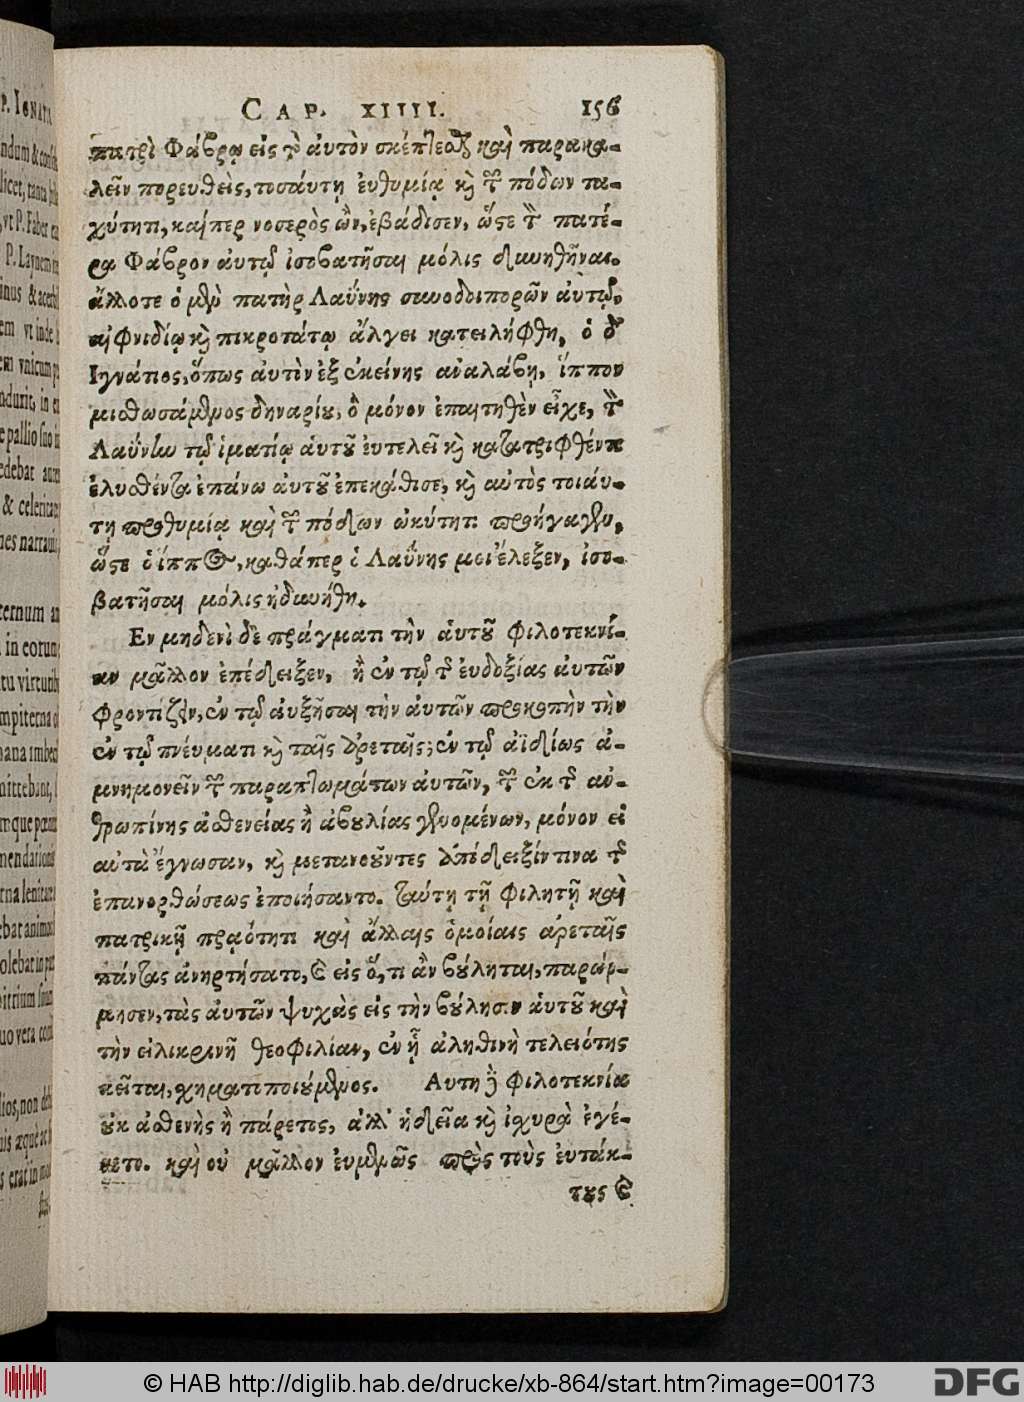 CAP. XIIII. 156
πατρὶ Φάβρῳ εἰς τὸ αὐτὸν σκέπτεσθαι καὶ παρακα-
λεῖν πορευθεὶς, τοσάυτῃ ἐυθυμίᾳ καὶ τῇ πόδων τα-
χύτητι, καίπερ νοσερὸς ὢν, ἐβάδισεν, ὥστε τὸν πατέ-
ρα Φάβρον ἀυτῷ ἰσοβατῆσαι μόλις δυνηθῆναι.
ἄλλοτε ὁ μὲν πατὴρ Λαΰνης συνοδοιπορῶν ἀυτῷ,
αἰφνιδίῳ καὶ πικροτάτῳ ἄλγει κατειλήφθη, ὁ δὲ
Ιγνάτιος, ὅπως ἀυτὸν ἐξ ἐκείνης ἀναλάβῃ, ἵππον
μισθωσάμενος δηναρίου, ὃ μόνον ἐπαιτηθὲν εἶχε, τὸν
Λαΰνην τῷ ἱματίῳ ἁυτοῦ ἐυτελεῖ καὶ κατατριφθέντι
ἐλυσθέντα ἐπάνω ἀυτοῦ ἐπεκάθισε, καὶ αὐτὸς τοιάυ-
τῃ προθυμίᾳ καὶ τῇ πόδων ὠκύτητι προήγαγεν,
ὥστε ὁ ἵππος, καθάπερ ὁ Λαΰνης μοι ἔλεξεν, ἰσο-
βατῆσαι μόλις ἠδυνήθη.
Εν μηδενὶ δὲ πράγματι τὴν ἁυτοῦ φιλοτεκνί-
αν μᾶλλον ἐπέδειξεν, ἢ ἐν τῷ τῆς ἐυδοξίας ἀυτῶν
φροντίζειν, ἐν τῷ ἀυξῆσαι τὴν ἀυτῶν προκοπὴν τὴν
ἐν τῷ πνέυματι καὶ ταῖς ἀρεταῖς; ἐν τῷ ἀϊδίως ἀ-
μνημονεῖν τῶν παραπτωμάτων ἀυτῶν, τῶν ἐκ τῆς ἀν-
θρωπίνης ἀσθενείας ἢ ἀβουλίας γενομένων, μόνον εἰ
αὐτὰ ἔγνωσαν, καὶ μετανοοῦντες ἀπόδειξίν τινα τῆς
ἐπανορθώσεως ἐποιήσαντο. Ταύτῃ τῇ φιλητῇ καὶ
πατρικῇ πραότητι καὶ ἄλλαις ὁμοίαις ἀρεταῖς
πάντας ἀνηρτήσατο, καὶ εἰς ὅ, τι ἂν βούληται, παρώρ-
μησεν, τὰς ἀυτῶν ψυχὰς εἰς τὴν βούλησιν ἁυτοῦ καὶ
τὴν εἰλικρινῆ θεοφιλίαν, ἐν ᾗ ἀληθινὴ τελειότης
κεῖται, χηματιποιούμενος. Αυτη ἡ φιλοτεκνία
οὐκ ἀσθενὴς ἢ πάρετος, ἀλλ' ἡδεῖα καὶ ἰχυρὰ ἐγέ-
νετο. καὶ οὐ μᾶλλον ἐυμενῶς πρὸς τοὺς ἐυτάκ-
τους καὶ
© HAB http://diglib.hab.de/drucke/xb-864/start.htm?image=00173
DFG